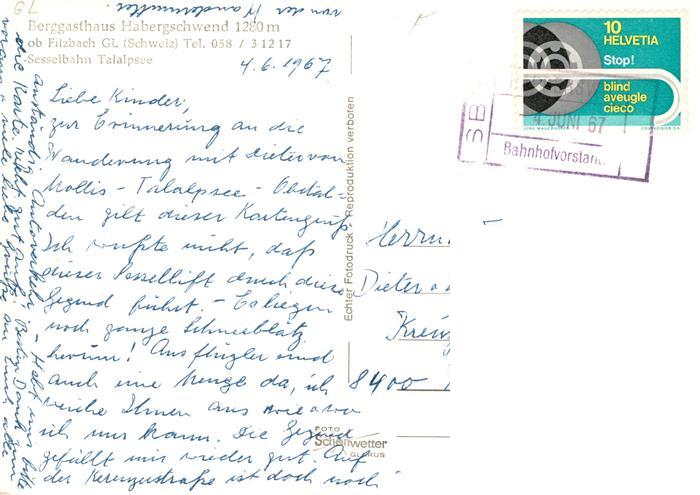 GL
von der
Berggasthaus Habergschwend 1280 m
ob Filzbach GL (Schweiz) Tel. 058 / 3 12 17
Sesselbahn Talalpsee
4.6.1967
Liebe Kinder,
zur Erinnerung an die
Wanderung mit Dieter von
Mollis - Talalpsee - Obstal-
den gilt dieser Kartengruß
Ich wußte nicht, daß
dieser Sessellift durch diese
Gegend führt. - Es liegen
noch ganze Schneeblätz
herum! Ausflügler sind
auch eine Menge da, ich
weiche Ihnen aus
ich nur kann. Die Gegend
gefällt mir wieder gut. Auf
der Kerenzerstraße ist doch noch
anständig Autoverkehr - Hebt mir bitte
die Karte recht gut auf! Besten Dank zum
voraus & viele liebe Grüße an Euch alle
Echter Fotodruck - Reproduktion verboten
FOTO
Schönwetter
GLARUS
10
HELVETIA
Stop!
blind
aveugle
cieco
COURVOISIER S.A.
SB
4. JUNI 67
Bahnhofvorstan
Herrn
Dieter
Kreuz
8400